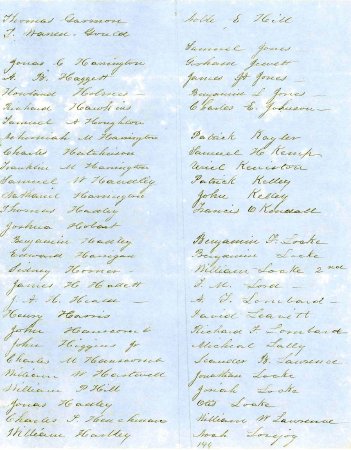 Thomas Garmon
T. Warren Gould
Jonas C Harrington
A. B. Haggett
Howland Holmes
Richard Hawkins
Samuel A Houghton
Nehemiah M Harrington
Charles Hutchinson
Franklin M Harrington
Samuel W Handley
Nathaniel Harrington
Thomas Hadley
Joshua Hobart
Benjamin Hadley
Edward Harrigan
Sidney Horner
James H
J. A. H.
Henry Harris
John Hanscomb
John Higgins Jr
Charles M Hanscomb
William W Hartwell
William P Hill
Jonas Hadley
Charles F.
William Hadley
Noble E Hill
Samuel Jones
Graham Jewett
James H Jones -
Benjamin L Jones -
Charles E
Patrick Kayler
Samuel H Kemp
Uriel
Patrick Kelley
John Kelley
Francis O Kendall
Benjamin F. Locke
Benjamin Locke
William Locke 2nd
F. M. Lord -
A. F. Lombard -
David
Richard F Lombard
Micheal Lally
Leander B. Lawrence
Jonathan Locke
Josiah Locke
Otis Locke
William W Lawrence
Noah Lovejoy
144